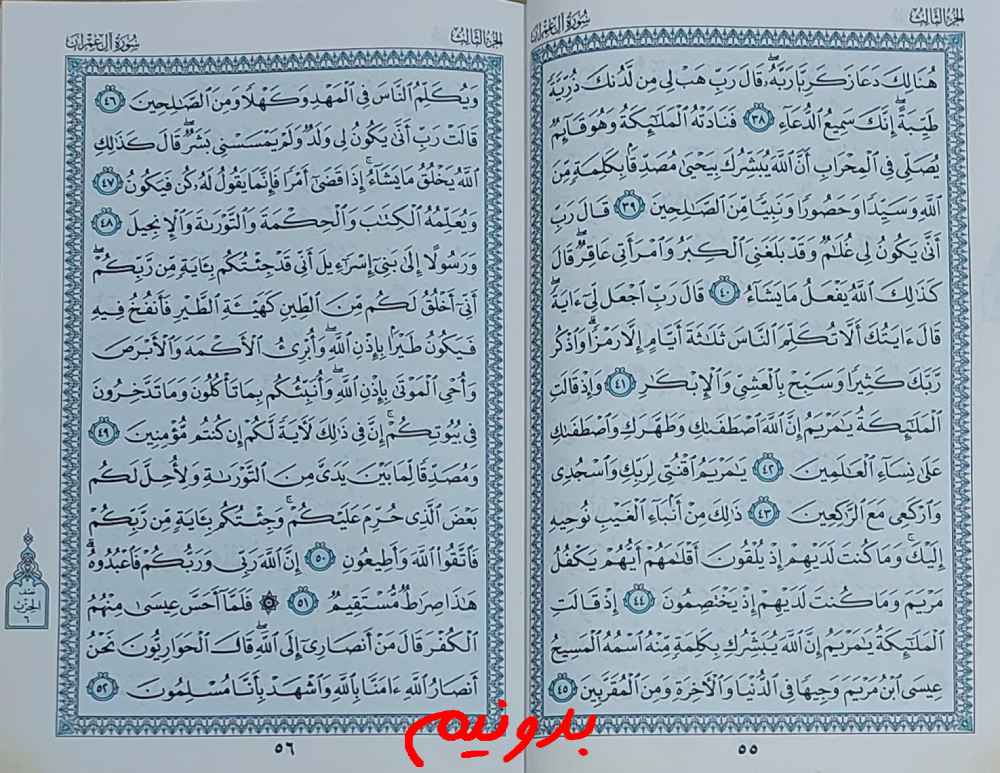 الجزء الثالث
سورة آل عمران
هُنَالِكَ دَعَا زَكَرِيَّا رَبَّهُۥ قَالَ رَبِّ هَبْ لِى مِن لَّدُنكَ ذُرِّيَّةً
طَيِّبَةً ۖ إِنَّكَ سَمِيعُ الدُّعَآءِ ٣٨ فَنَادَتْهُ الْمَلَٰٓئِكَةُ وَهُوَ قَآئِمٌ
يُصَلِّى فِى الْمِحْرَابِ أَنَّ اللَّهَ يُبَشِّرُكَ بِيَحْيَىٰ مُصَدِّقًا بِكَلِمَةٍ مِّنَ
اللَّهِ وَسَيِّدًا وَحَصُورًا وَنَبِيًّا مِّنَ الصَّٰلِحِينَ ٣٩ قَالَ رَبِّ
أَنَّىٰ يَكُونُ لِى غُلَٰمٌ وَقَدْ بَلَغَنِىَ الْكِبَرُ وَامْرَأَتِى عَاقِرٌ ۖ قَالَ
كَذَٰلِكَ اللَّهُ يَفْعَلُ مَا يَشَآءُ ٤٠ قَالَ رَبِّ اجْعَل لِّىٓ ءَايَةً ۖ
قَالَ ءَايَتُكَ أَلَّا تُكَلِّمَ النَّاسَ ثَلَٰثَةَ أَيَّامٍ إِلَّا رَمْزًا ۗ وَاذْكُر
رَّبَّكَ كَثِيرًا وَسَبِّحْ بِالْعَشِىِّ وَالْإِبْكَٰرِ ٤١ وَإِذْ قَالَتِ
الْمَلَٰٓئِكَةُ يَٰمَرْيَمُ إِنَّ اللَّهَ اصْطَفَىٰكِ وَطَهَّرَكِ وَاصْطَفَىٰكِ
عَلَىٰ نِسَآءِ الْعَٰلَمِينَ ٤٢ يَٰمَرْيَمُ اقْنُتِى لِرَبِّكِ وَاسْجُدِى
وَارْكَعِى مَعَ الرَّٰكِعِينَ ٤٣ ذَٰلِكَ مِنْ أَنۢبَآءِ الْغَيْبِ نُوحِيهِ
إِلَيْكَ ۚ وَمَا كُنتَ لَدَيْهِمْ إِذْ يُلْقُونَ أَقْلَٰمَهُمْ أَيُّهُمْ يَكْفُلُ
مَرْيَمَ وَمَا كُنتَ لَدَيْهِمْ إِذْ يَخْتَصِمُونَ ٤٤ إِذْ قَالَتِ
الْمَلَٰٓئِكَةُ يَٰمَرْيَمُ إِنَّ اللَّهَ يُبَشِّرُكِ بِكَلِمَةٍ مِّنْهُ اسْمُهُ الْمَسِيحُ
عِيسَى ابْنُ مَرْيَمَ وَجِيهًا فِى الدُّنْيَا وَالْءَاخِرَةِ وَمِنَ الْمُقَرَّبِينَ ٤٥
٥٥
الجزء الثالث
سورة آل عمران
وَيُكَلِّمُ النَّاسَ فِى الْمَهْدِ وَكَهْلًا وَمِنَ الصَّٰلِحِينَ ٤٦
قَالَتْ رَبِّ أَنَّىٰ يَكُونُ لِى وَلَدٌ وَلَمْ يَمْسَسْنِى بَشَرٌ ۖ قَالَ كَذَٰلِكِ
اللَّهُ يَخْلُقُ مَا يَشَآءُ ۚ إِذَا قَضَىٰٓ أَمْرًا فَإِنَّمَا يَقُولُ لَهُۥ كُن فَيَكُونُ ٤٧
وَيُعَلِّمُهُ الْكِتَٰبَ وَالْحِكْمَةَ وَالتَّوْرَىٰةَ وَالْإِنجِيلَ ٤٨
وَرَسُولًا إِلَىٰ بَنِىٓ إِسْرَٰٓءِيلَ أَنِّى قَدْ جِئْتُكُم بِـَٔايَةٍ مِّن رَّبِّكُمْ ۖ
أَنِّىٓ أَخْلُقُ لَكُم مِّنَ الطِّينِ كَهَيْـَٔةِ الطَّيْرِ فَأَنفُخُ فِيهِ
فَيَكُونُ طَيْرًۢا بِإِذْنِ اللَّهِ ۖ وَأُبْرِئُ الْأَكْمَهَ وَالْأَبْرَصَ
وَأُحْىِ الْمَوْتَىٰ بِإِذْنِ اللَّهِ ۖ وَأُنَبِّئُكُم بِمَا تَأْكُلُونَ وَمَا تَدَّخِرُونَ
فِى بُيُوتِكُمْ ۚ إِنَّ فِى ذَٰلِكَ لَءَايَةً لَّكُمْ إِن كُنتُم مُّؤْمِنِينَ ٤٩
وَمُصَدِّقًا لِّمَا بَيْنَ يَدَىَّ مِنَ التَّوْرَىٰةِ وَلِأُحِلَّ لَكُم
بَعْضَ الَّذِى حُرِّمَ عَلَيْكُمْ ۚ وَجِئْتُكُم بِـَٔايَةٍ مِّن رَّبِّكُمْ
فَاتَّقُوا اللَّهَ وَأَطِيعُونِ ٥٠ إِنَّ اللَّهَ رَبِّى وَرَبُّكُمْ فَاعْبُدُوهُ ۗ
هَٰذَا صِرَٰطٌ مُّسْتَقِيمٌ ٥١ ۞ فَلَمَّآ أَحَسَّ عِيسَىٰ مِنْهُمُ
الْكُفْرَ قَالَ مَنْ أَنصَارِىٓ إِلَى اللَّهِ ۖ قَالَ الْحَوَارِيُّونَ نَحْنُ
أَنصَارُ اللَّهِ ءَامَنَّا بِاللَّهِ وَاشْهَدْ بِأَنَّا مُسْلِمُونَ ٥٢
نصف
الحزب
٦
٥٦
بدونیم